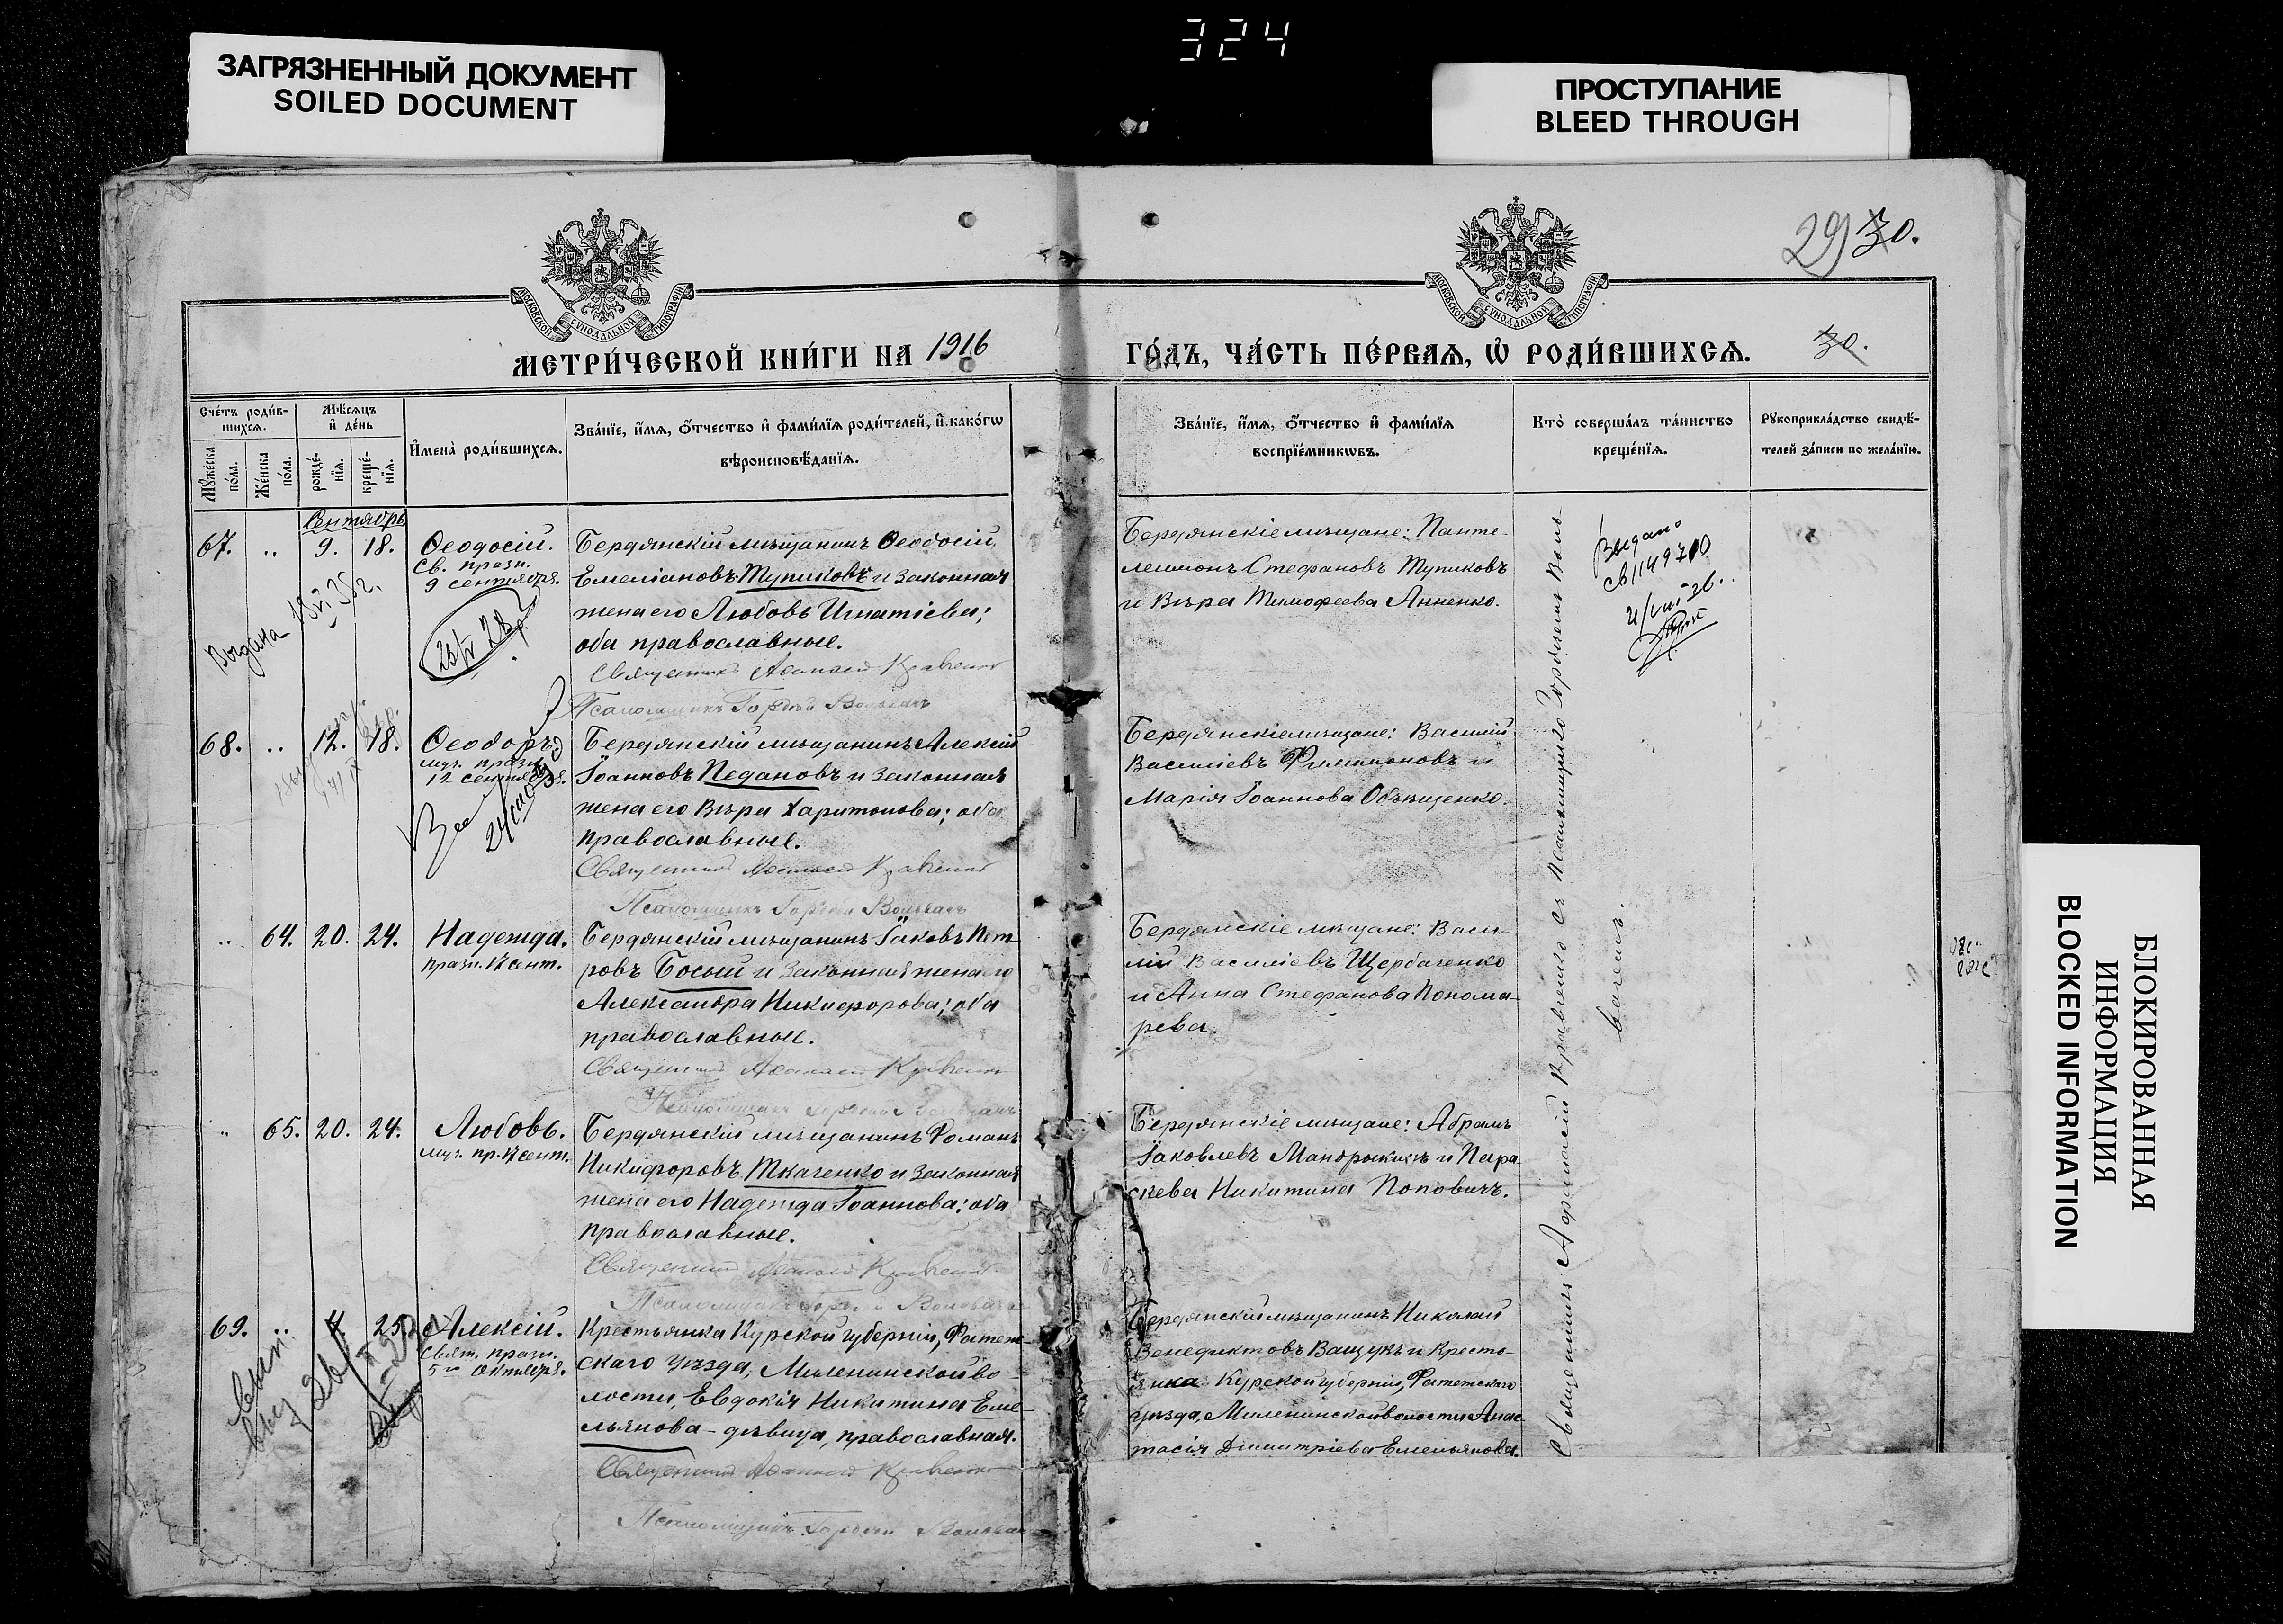 324
ЗАГРЯЗНЕННЫЙ ДОКУМЕНТ
SOILED DOCUMENT
ПРОСТУПАНИЕ
BLEED THROUGH
29 30.
МОСКОВСКОЙ СУНОДАЛЬНОЙ ТИПОГРАФІИ
МОСКОВСКОЙ СУНОДАЛЬНОЙ ТИПОГРАФІИ
МЕТРИ́ЧЕСКОЙ КНИ́ГИ НА 1916
ГО́ДЪ, ЧА́СТЬ ПЕ́РВАѦ, Ѡ РОДИ́ВШИХСѦ.
30.
Сче́тъ роди́в-
шихсѧ.
Мѣ́сѧцъ
и҆ де́нь
Мꙋ́жеска
по́ла.
Же́нска
по́ла.
рожде́-
нїѧ.
креще́-
нїѧ.
И҆мена̀ роди́вшихсѧ.
Зва́нїе, и҆́мѧ, ѻ҆́тчество и҆ фами́лїѧ роди́телей, и҆ како́гѡ
вѣроисповѣ́данїѧ.
Зва́нїе, и҆́мѧ, ѻ҆́тчество и҆ фами́лїѧ
воспрїе́мникѡвъ.
Кто̀ соверша́лъ та́инство
креще́нїѧ.
Рꙋкоприкла́дство свидѣ́-
телей за́писи по жела́нїю.
Сентябрь
67. .. 9. 18. Ѳеодосій.
Св. празн.
9 сентября.
Бердянскій мѣщанинъ Ѳеодосій
Емеліановъ Тупиковъ и законная
жена его Любовь Игнатіева;
оба православные.
Священникъ Аѳанасій Кравченко
Псаломщикъ Гордѣй Воловачъ
Бердянскіе мѣщане: Панте-
леимонъ Стефановъ Тупиковъ
и Вѣра Тимофеева Анненко.
Выдано
Выдана
68. .. 12. 18. Ѳеодоръ
муч. празн.
12 сентября.
Бердянскій мѣщанинъ Алексій
Іоанновъ Педановъ и законная
жена его Вѣра Харитонова; оба
православные.
Священникъ Аѳанасій Кравченко
Псаломщикъ Гордѣй Воловачъ
Бердянскіе мѣщане: Василій
Василіевъ Филимоновъ и
Марія Іоаннова Обѣщенко.
.. 64. 20. 24. Надежда.
празн. 17 сент.
Бердянскій мѣщанинъ Іаковъ Пет-
ровъ Босый и законная жена его
Александра Никифорова; оба
православные.
Священникъ Аѳанасій Кравченко
Псаломщикъ Гордѣй Воловачъ
Бердянскіе мѣщане: Васи-
лій Василіевъ Щербаченко
и Анна Стефанова Понома-
рева.
.. 65. 20. 24. Любовь.
муч. пр. 17 сент.
Бердянскій мѣщанинъ Романъ
Никифоровъ Ткаченко и законная
жена его Надежда Іоаннова; оба
православные.
Священникъ Аѳанасій Кравченко
Псаломщикъ Гордѣй Воловачъ
Бердянскіе мѣщане: Абрамъ
Іаковлевъ Мандрыкинъ и Пара-
скева Никитина Поповичъ.
69. .. 4. 25. Алексій.
Свят. празн.
5го октября.
Крестьянка Курской губерніи, Фатеж-
скаго уѣзда, Миленинской во-
лости, Евдокія Никитина Еме-
льянова - дѣвица, православная.
Священникъ Аѳанасій Кравченко
Псаломщикъ Гордѣй Воловачъ
Бердянскій мѣщанинъ Николай
Венедиктовъ Ващукъ и кресть-
янка Курской губерніи, Фатежскаго
уѣзда, Миленинской волости Анас-
тасія Димитріева Емельянова.
Священникъ Аѳанасій Кравченко съ псаломщикомъ Гордѣемъ Воло-
вачемъ.
БЛОКИРОВАННАЯ
ИНФОРМАЦИЯ
BLOCKED INFORMATION